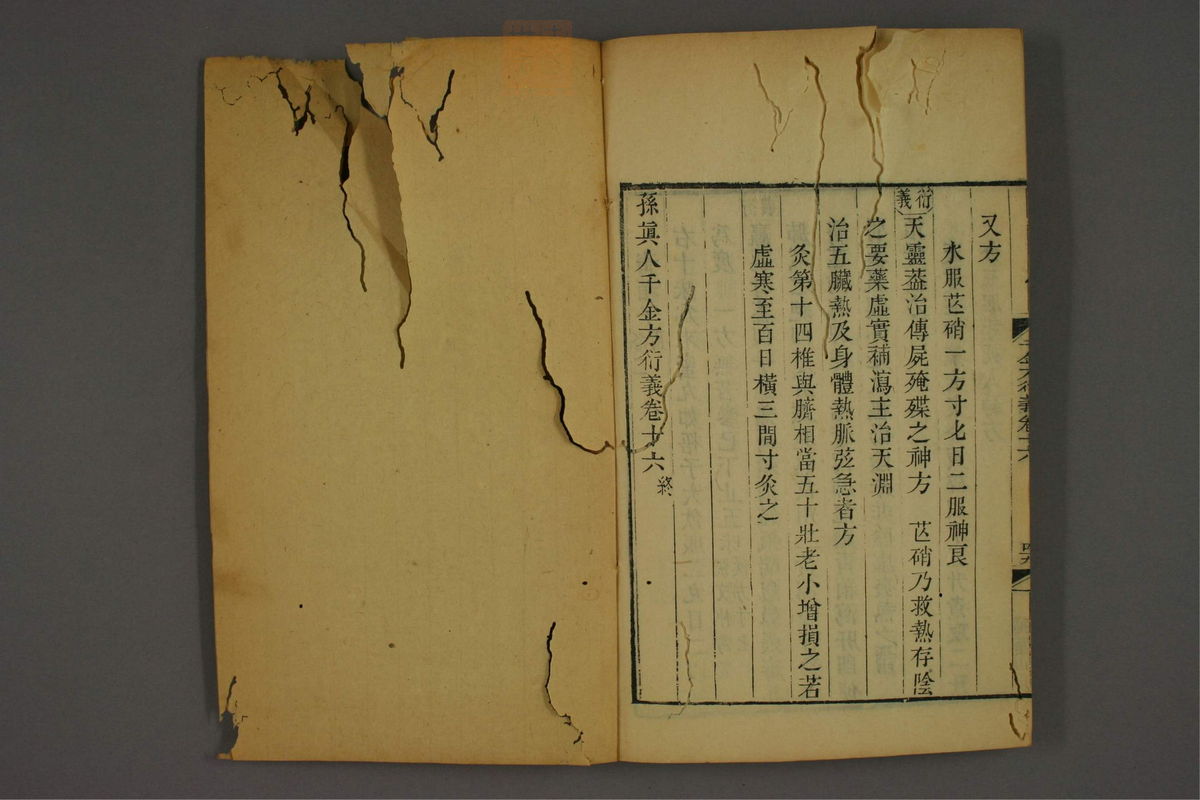 又方
水服芒硝一方寸匕日二服神良
衍義
天靈蓋治傳屍殗殜之神方　芒硝乃救熱存陰
之要藥虛實補瀉主治天淵
治五臟熱及身體熱脈弦急者方
灸第十四椎與臍相當五十壯老小增損之若
虛寒至百日橫三間寸灸之
孫眞人千金方衍義卷十六
終